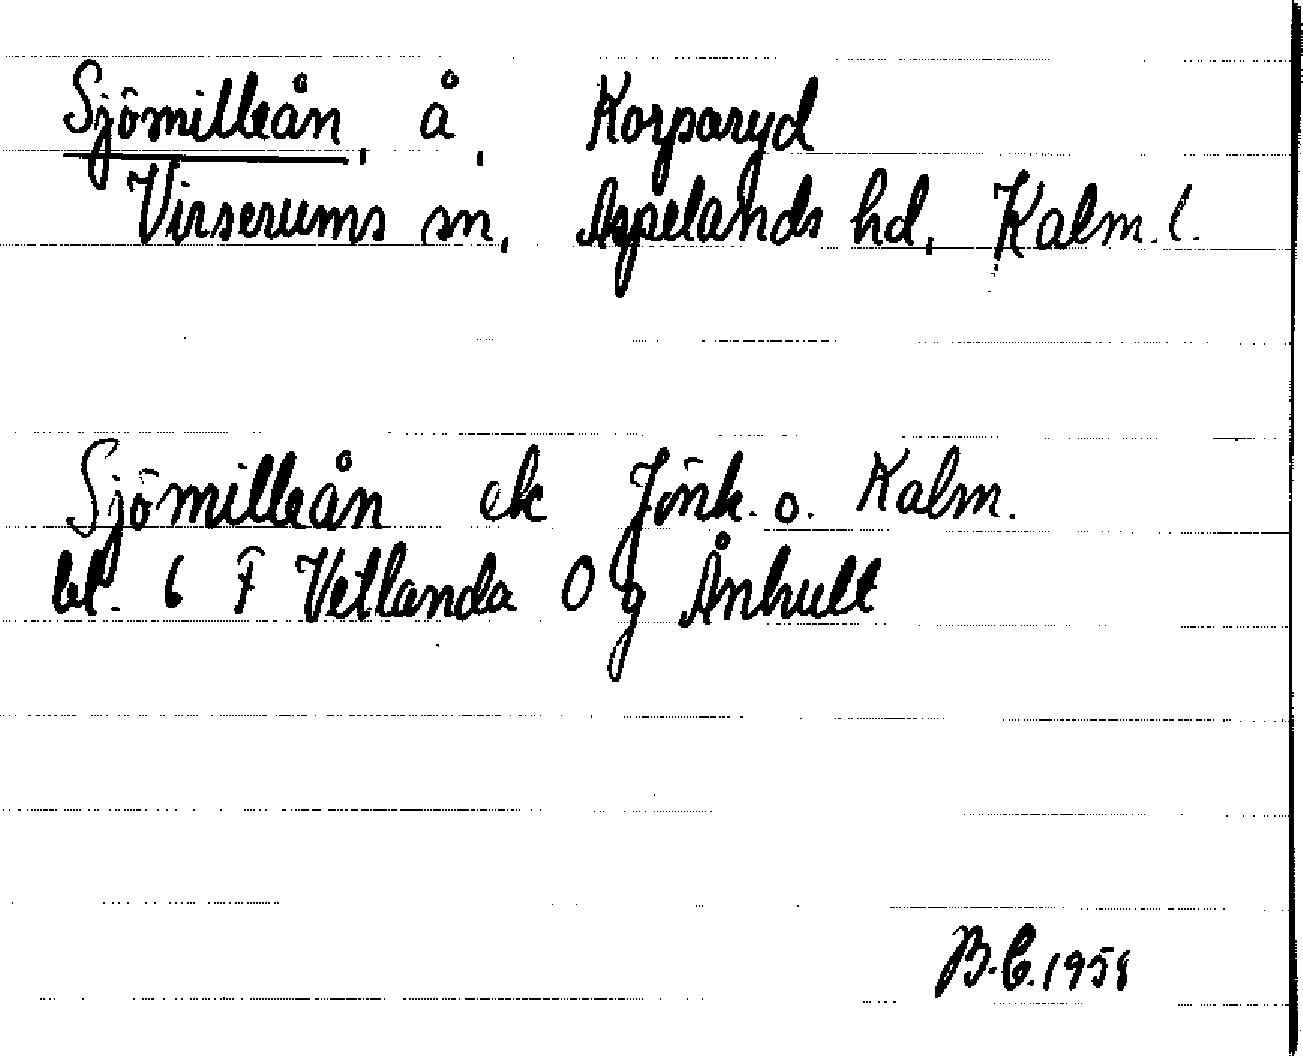 Sjömilleån, å, Korparyd
Virserums sn, Aspelands hd, Kalm. l.
Sjömilleån ek Jönk. o. Kalm.
bl. 6 F Vetlanda 0 g Ånhult
B.C. 1958